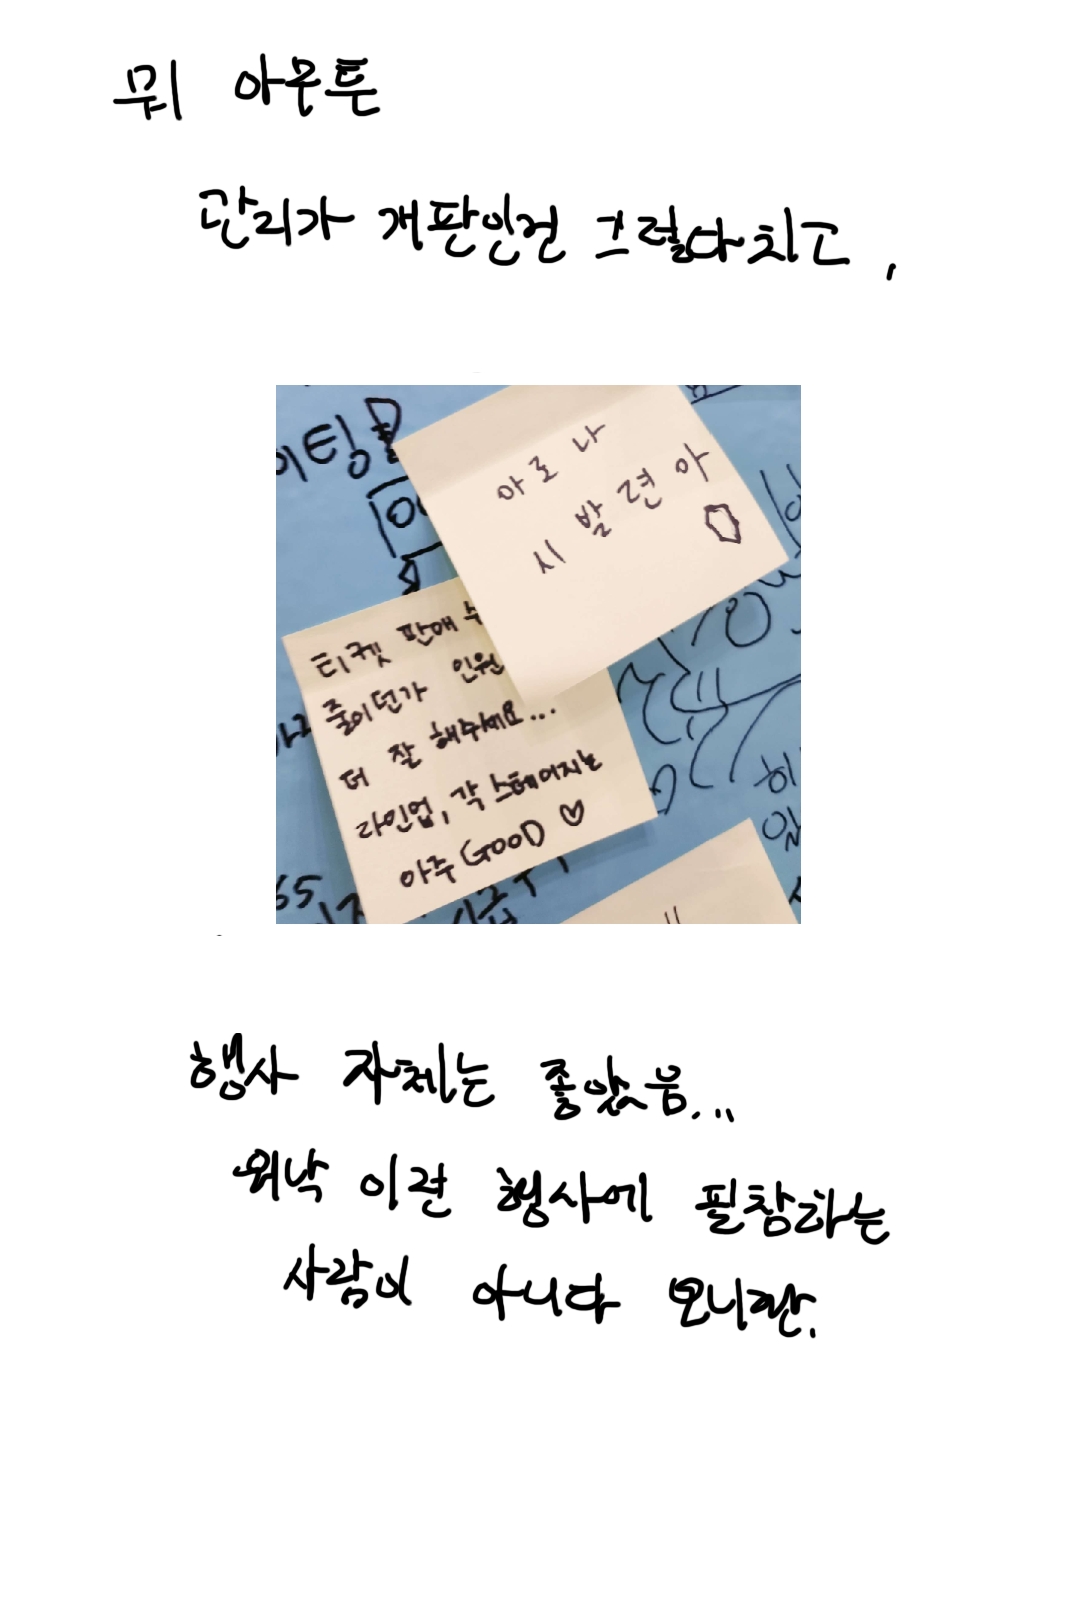 뭐 아무튼
관리가 개판인건 그렇다치고,
이팅존
아로나
시발련아
티켓 판매
줄이던가 인원
더 잘 해주세요...
라인업, 각 스테이지는
아주 GOOD ♡
행사 자체는 좋았음...
워낙 이런 행사에 필참하는
사람이 아니다 보니깐.